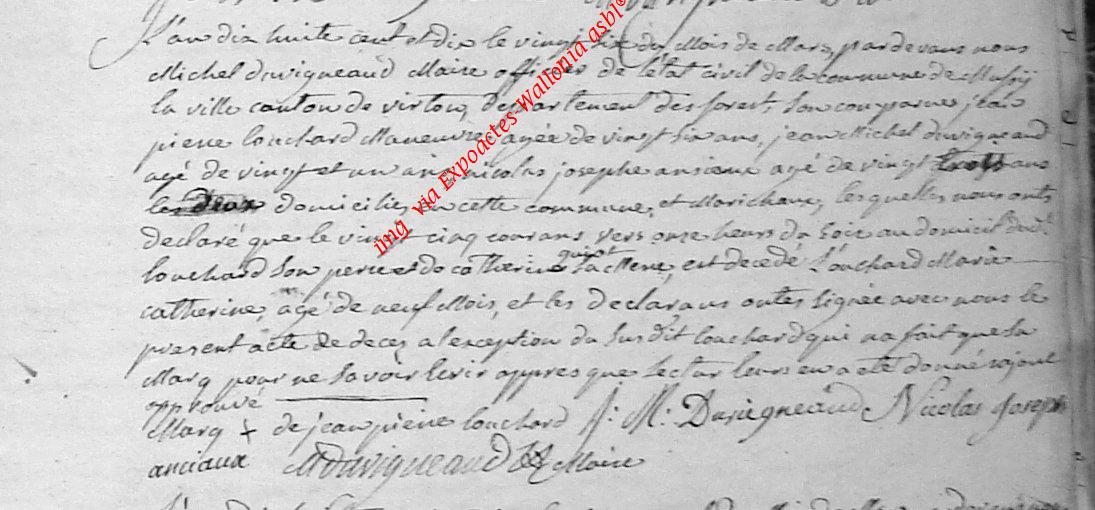 L'an dix huite cent et dix le vingt six du Mois de Mars, pardevant nous
Michel duvigneaud Maire officier de l'état civil de la commune de Mussy
la ville canton de virton, departement des forest, son comparue jean
piere louchard Maneuvre, agée de vingt six ans, jean Michel duvigneaud
agé de vingt et un ans nicolas josephe anciaux agé de vingt trois ans
les deux domiciliés en cette commune, et Marichaux, les quelles nous onts
declaré que le vingt cinq courans, vers onze heurs du soir au domicil dudt
louchard son pere et de catherine guiot
sa Mere, est decedé Louchard Maria
catherine, agé de neuf Mois, et les declarans ontes signée avec nous le
present acte de decès a l'exception du susdit louchard qui na fait que sa
Marq pour ne savoir ecrir appres que lectur leurs en a eté donné
approuvé
Marq + de jean piere louchard J: M: Duvigneaud Nicolas Joseph
anciaux MDuvigneaud Maire
img via Expoactes Wallonia asbl©